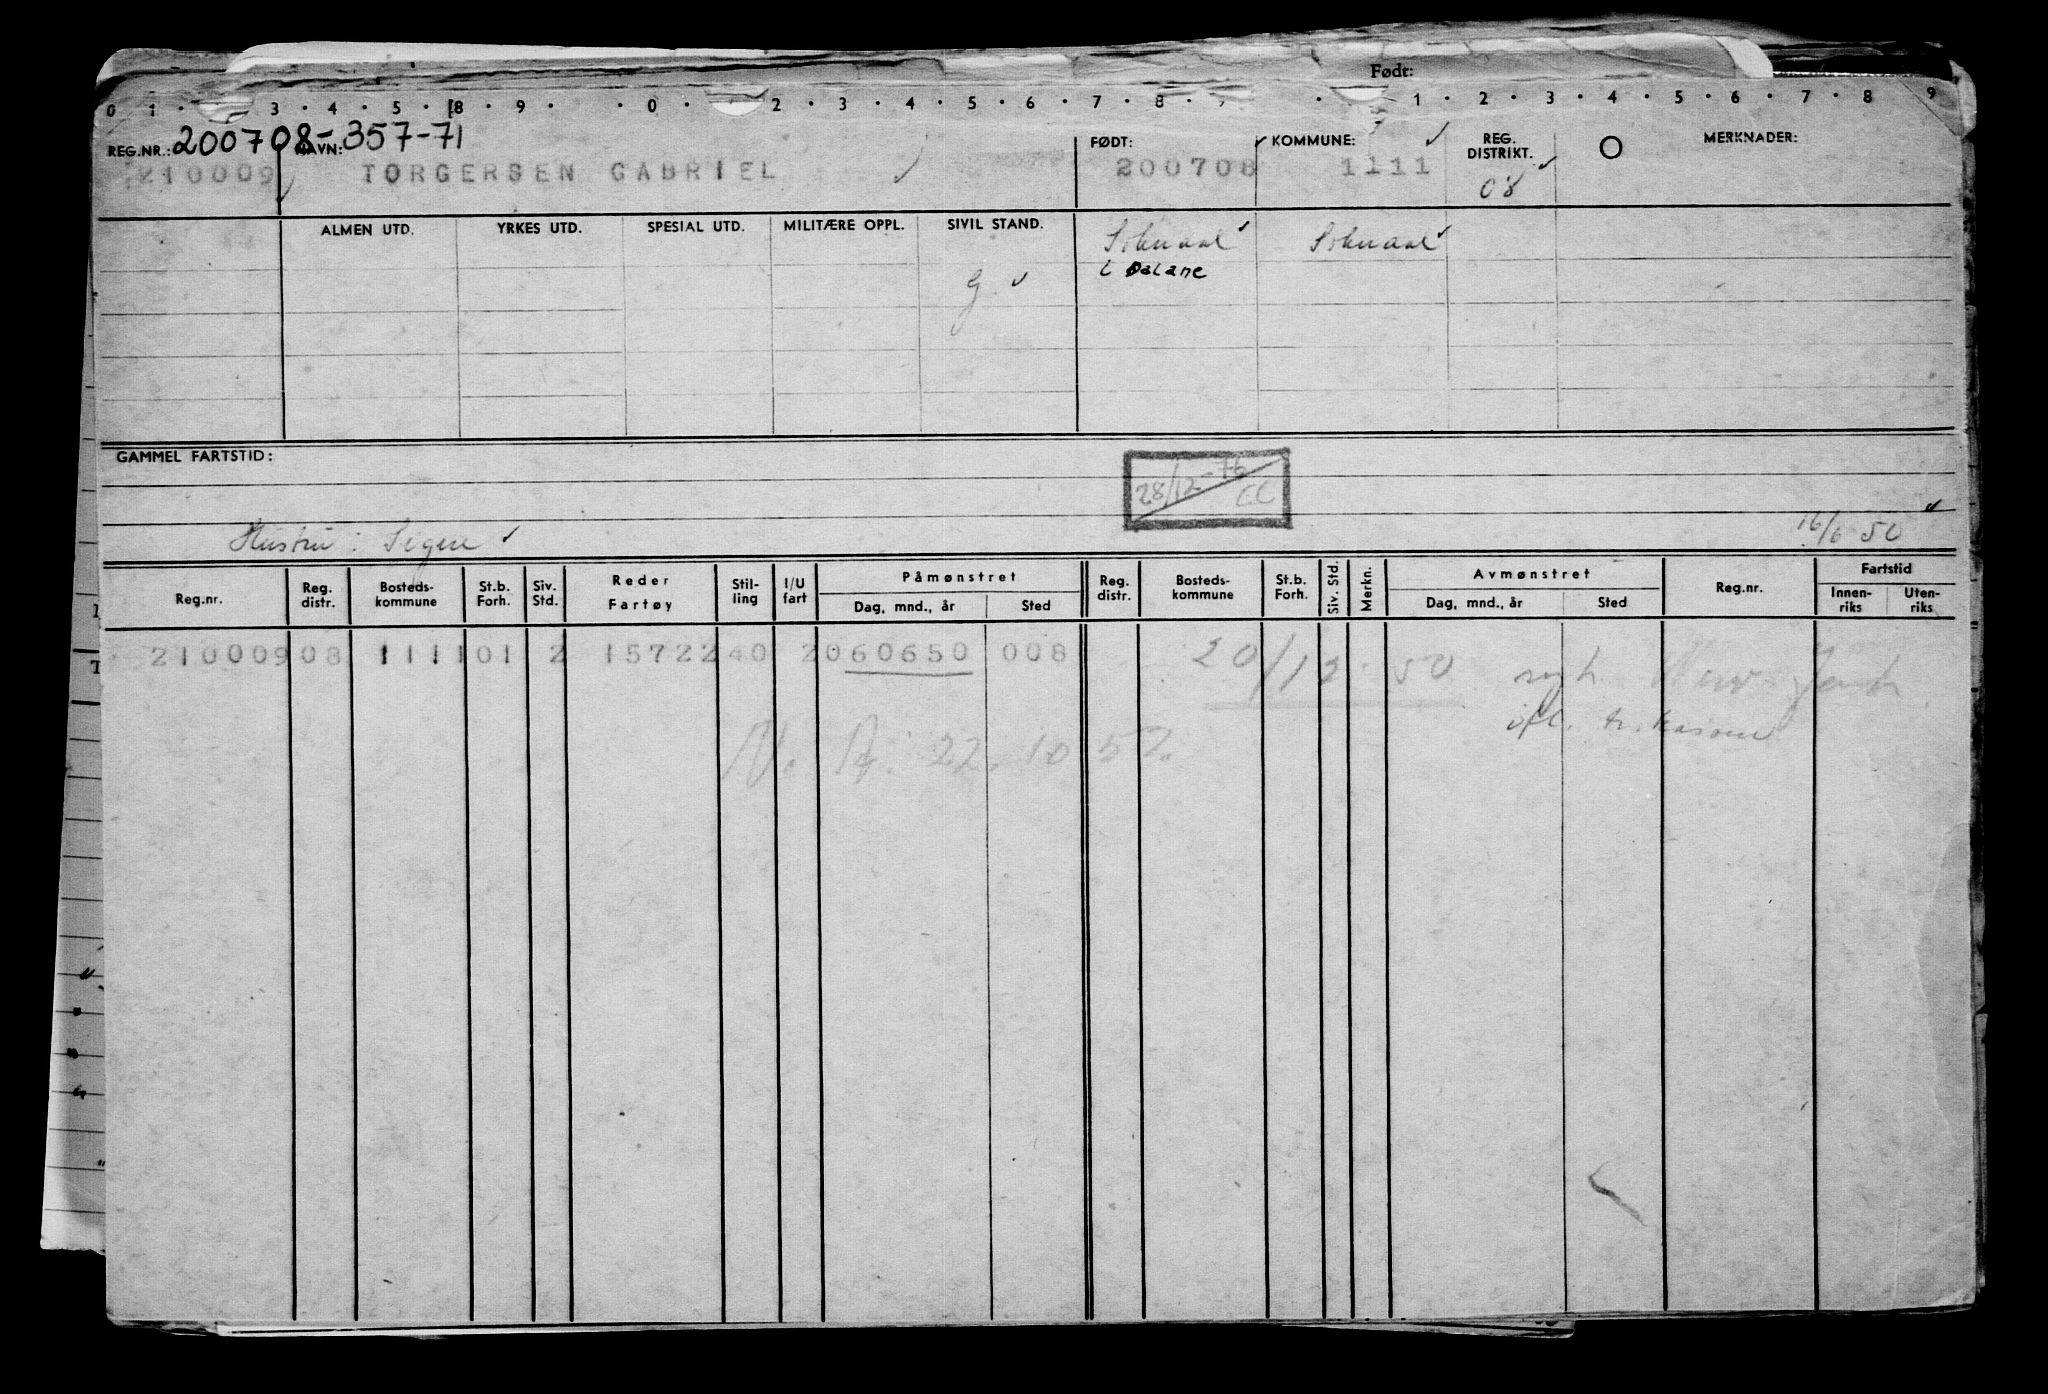 Født:
0 1 · 3 · 4 · 5 · 8 · 9 · · 0 · 2 · 3 · 4 · 5 · 6 · 7 · 8 · · 1 · 2 · 3 · 4 · 5 · 6 · 7 · 8 9
REG.NR.: 200708-357-71 NAVN: FØDT: KOMMUNE: REG. DISTRIKT. O MERKNADER:
210009 TORGERSEN GABRIEL 200708 1111 08
ALMEN UTD. YRKES UTD. SPESIAL UTD. MILITÆRE OPPL. SIVIL STAND. Sokndal Sokndal
i Dalane
G
GAMMEL FARTSTID:
28/12-76
CC
Hustru: Signe 16/6 50
Reg.nr. Reg. distr. Bosteds-kommune St.b. Forh. Siv. Std. Reder Fartøy Stil-ling I/U fart Påmønstret Dag, mnd., år Sted Reg. distr. Bosteds-kommune St.b. Forh. Siv. Std. Merkn. Avmønstret Dag, mnd., år Sted Reg.nr. Fartstid Innen-riks Uten-riks
210009 08 1111 01 2 15722 40 2 060650 008 20/12 50 syk New York
N. A. 22.10 57.